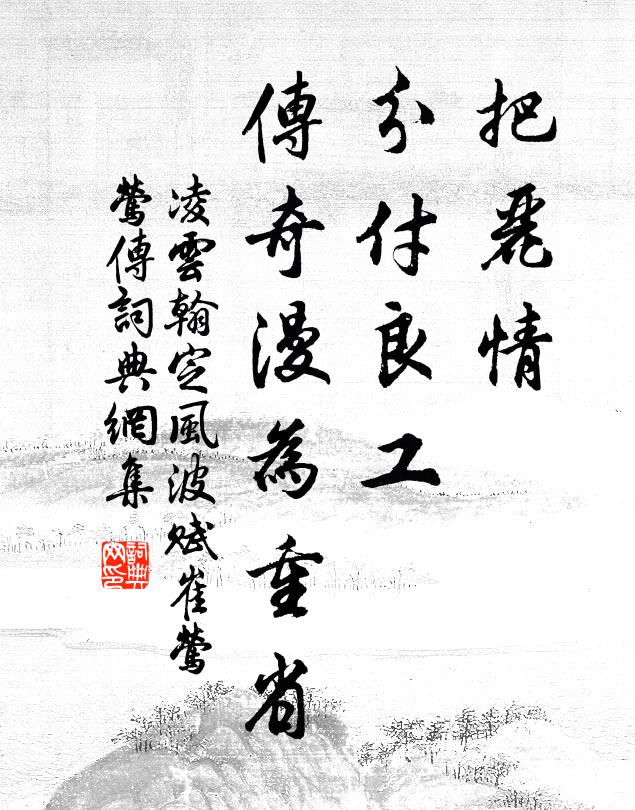 把麗情
分付良工
傳奇漫為重省
凌雲翰定風波賦崔鶯
鶯傳詞典網集
詞典
网印